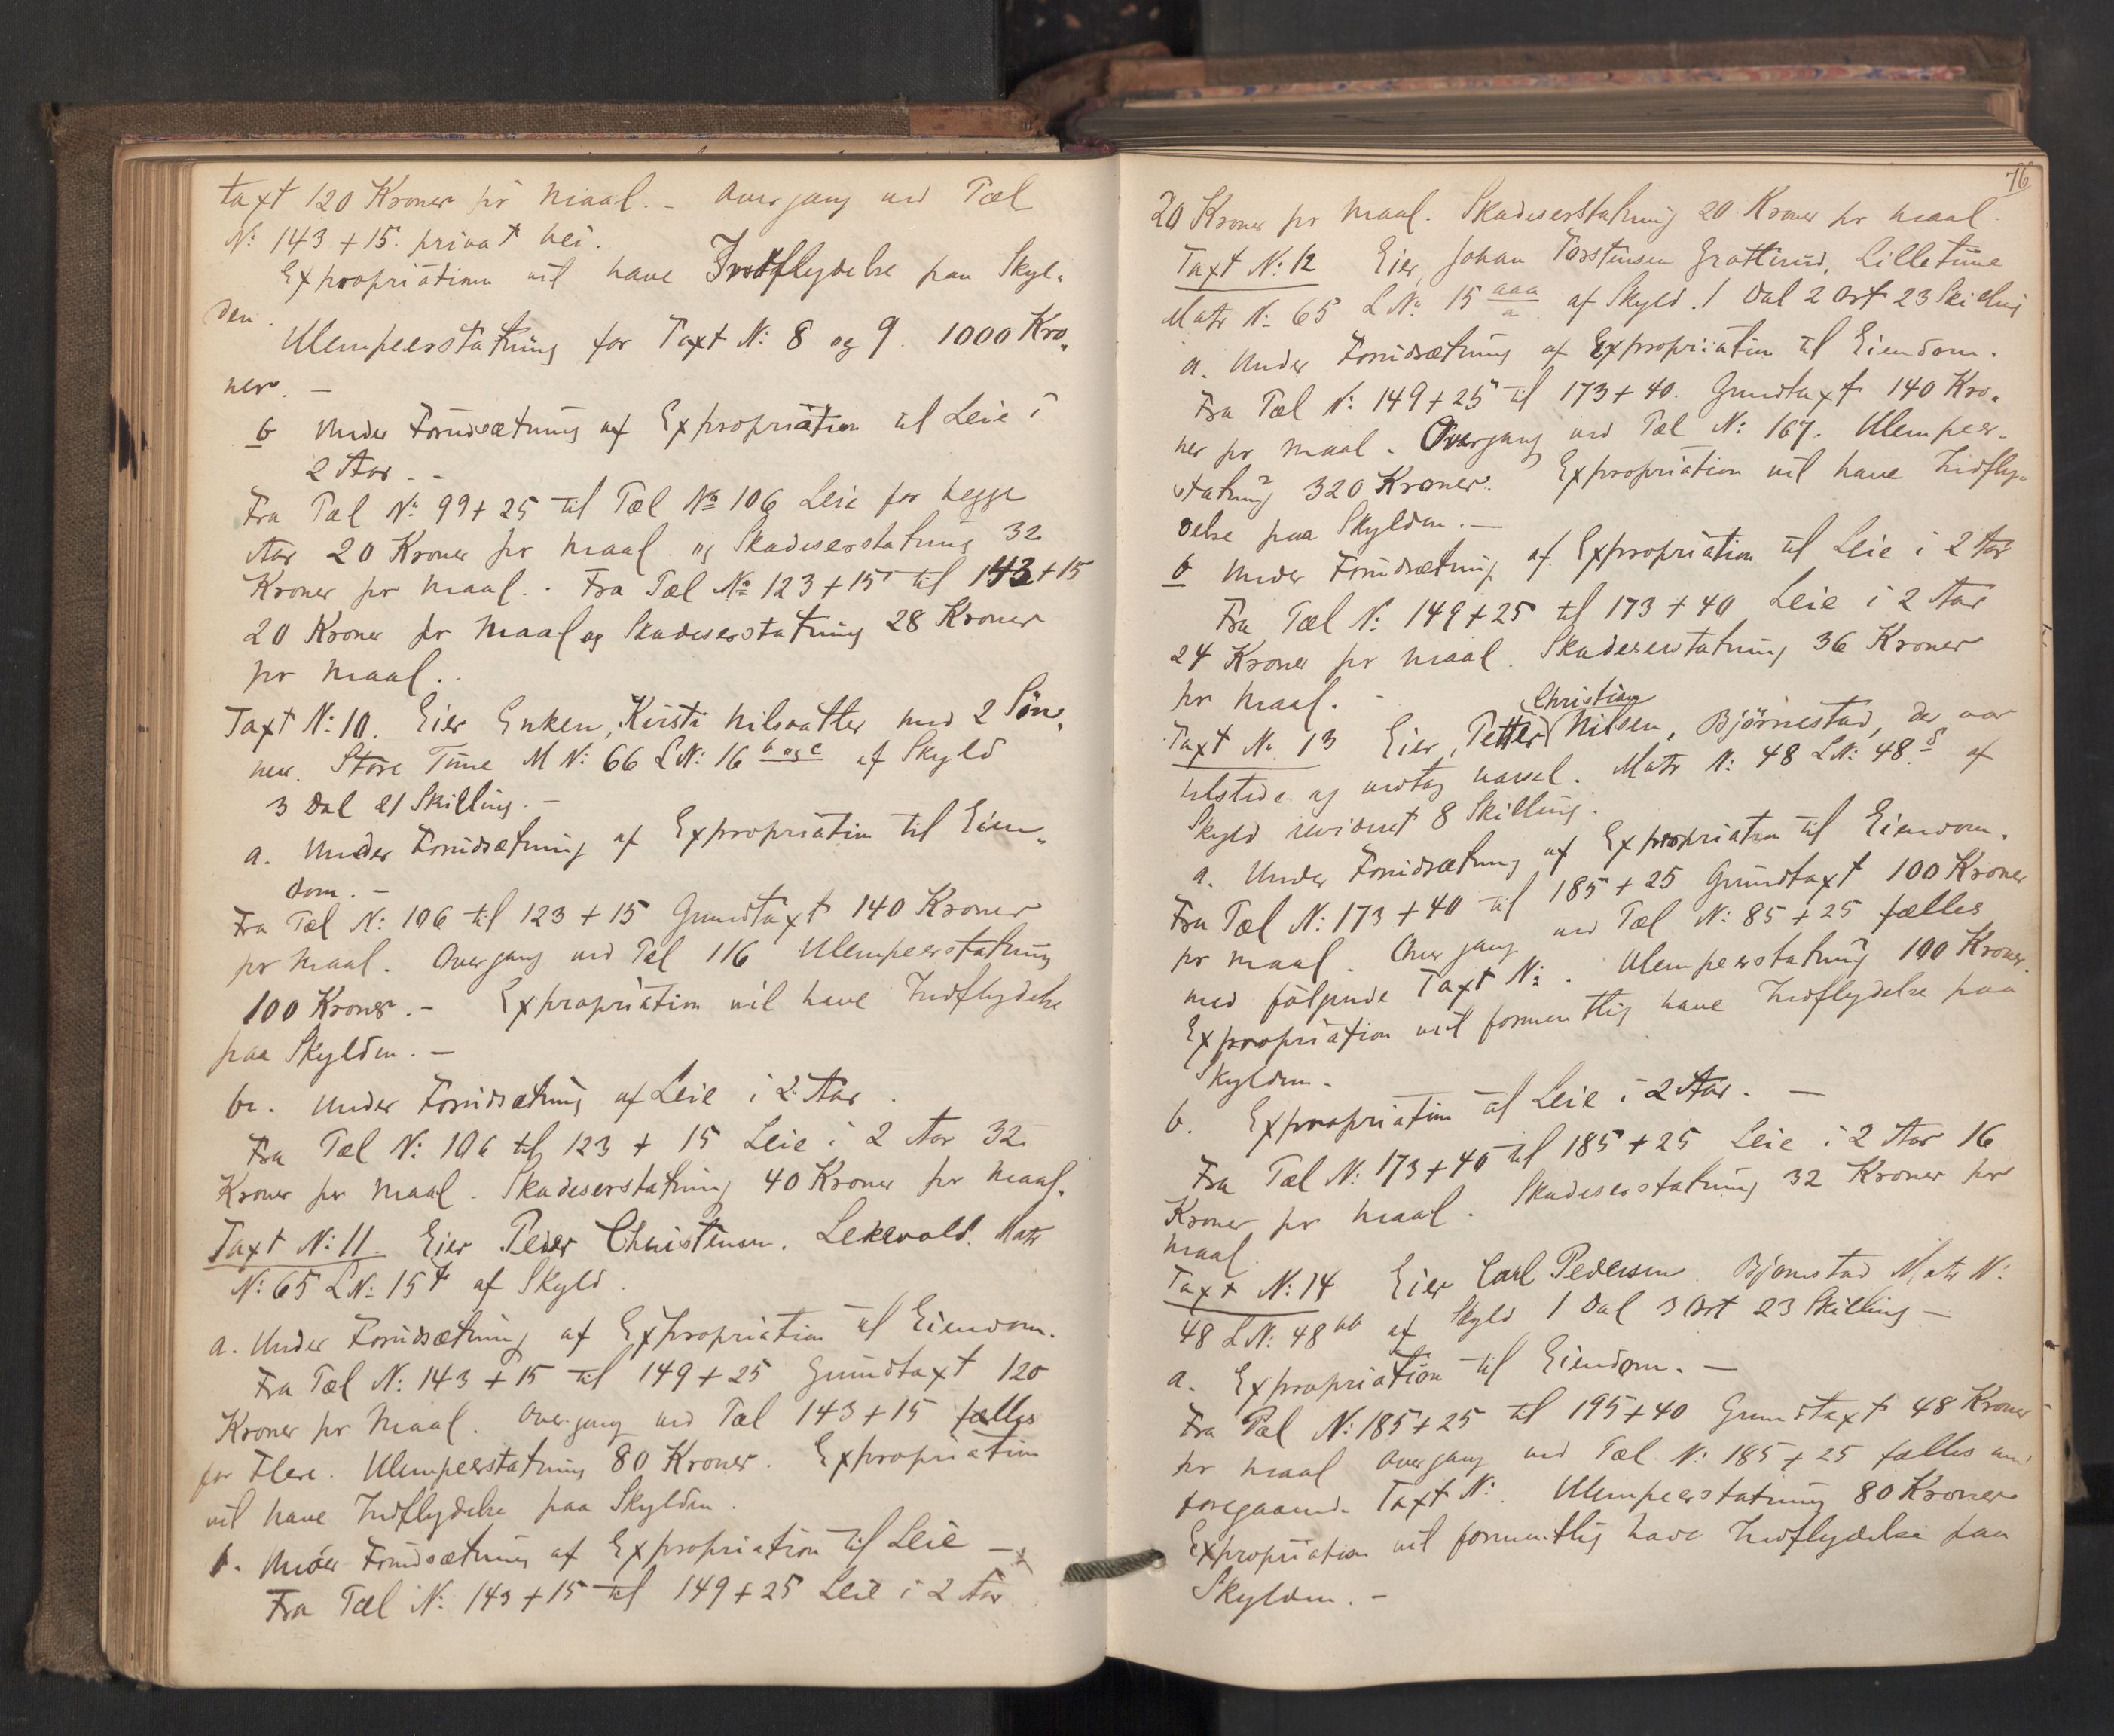 taxt 120 Kroner pr Maal. - Overgang ved Pæl
No: 143 + 15. privat Vei.
Expropriationen vil have Indflydelse paa Skyl-
den.
Ulempeerstatning for Taxt No: 8 og 9. 1000 Kro-
ner. -
b Under Forudsætning af Expropriation til Leie i
2 Aar. -
Fra Pæl No: 99 + 25 til Pæl No 106 Leie for begge
Aar 20 Kroner pr Maal og Skadeserstatning 32
Kroner pr Maal. - Fra Pæl No 123 + 15 til 143 + 15
20 Kroner pr Maal og Skadeserstatning 28 Kroner
pr Maal. -
Taxt No: 10. Eier Enken, Kirsti Nilsdatter med 2 Søn-
ner. Store Tune M No: 66 L No: 16 b og c af Skyld
3 Dal 21 Skilling. -
a. Under Forudsætning af Expropriation til Eien-
dom. -
Fra Pæl No: 106 til 123 + 15 Grundtaxt 140 Kroner
pr Maal. Overgang ved Pæl 116 Ulempeerstatning
100 Kroner. - Expropriation vil have Indflydelse
paa Skylden. -
b. Under Forudsætning af Leie i 2 Aar.
Fra Pæl No: 106 til 123 + 15 Leie i 2 Aar 32
Kroner pr Maal. Skadeserstatning 40 Kroner pr Maal.
Taxt No: 11. Eier Peder Christensen. Lekevold. Matr
No: 65 L No: 15 af Skyld.
a. Under Forudsætning af Expropriation til Eiendom.
Fra Pæl No: 143 + 15 til 149 + 25 Grundtaxt 120
Kroner pr Maal. Overgang ved Pæl 143 + 15 fælles
for Flere. Ulempeerstatning 80 Kroner. Expropriation
vil have Indflydelse paa Skylden.
b. Under Forudsætning af Expropriation til Leie -
Fra Pæl No: 143 + 15 til 149 + 25 Leie i 2 Aar
76
20 Kroner pr Maal. Skadeserstatning 20 Kroner pr Maal.
Taxt No: 12 Eier, Johan Torstensen Grøtterud, Lilletune
Matr No: 65 L No: 15 aaa a af Skyld. 1 Dal 2 Ort 23 Skilling
a. Under Forudsætning af Expropriation til Eiendom.
Fra Pæl No: 149 + 25 til 173 + 40. Grundtaxt 140 Kro-
ner pr Maal. Overgang ved Pæl No: 167. Ulempeer-
statning 320 Kroner. Expropriation vil have Indfly-
delse paa Skylden. -
b Under Forudsætning af Expropriation til Leie i 2 Aar
Fra Pæl No: 149 + 25 til 173 + 40 Leie i 2 Aar
24 Kroner pr Maal. Skadeserstatning 36 Kroner
pr Maal. -
Christian
Taxt No. 13 Eier, Petter Nilsen, Bjørnestad, der var
tilstede og vedtog Varsel. Matr No: 48 L No: 48 af
Skyld revideret 8 Skilling.
a. Under Forudsætning af Expropriation til Eiendom.
Fra Pæl No: 173 + 40 til 185 + 25 Grundtaxt 100 Kroner
pr Maal. Overgang ved Pæl No: 85 + 25 fælles
med følgende Taxt No: . Ulempeerstatning 100 Kroner.
Expropriation vil formentlig have Indflydelse paa
Skylden. -
b. Expropriation til Leie i 2 Aar. -
Fra Pæl No: 173 + 40 til 185 + 25 Leie i 2 Aar 16
Kroner pr Maal. Skadeserstatning 32 Kroner pr
Maal.
Taxt No: 14 Eier Carl Pedersen. Bjørnestad Matr No:
48 L No: 48 ab af Skyld 1 Dal 3 Ort 23 Skilling -
a. Expropriation til Eiendom. -
Fra Pæl No: 185 + 25 til 195 + 40 Grundtaxt 48 Kroner
pr Maal Overgang ved Pæl No: 185 + 25 fælles med
foregaaende Taxt No: . Ulempeerstatning 80 Kroner
Expropriation vil formentlig have Indflydelse paa
Skylden. -